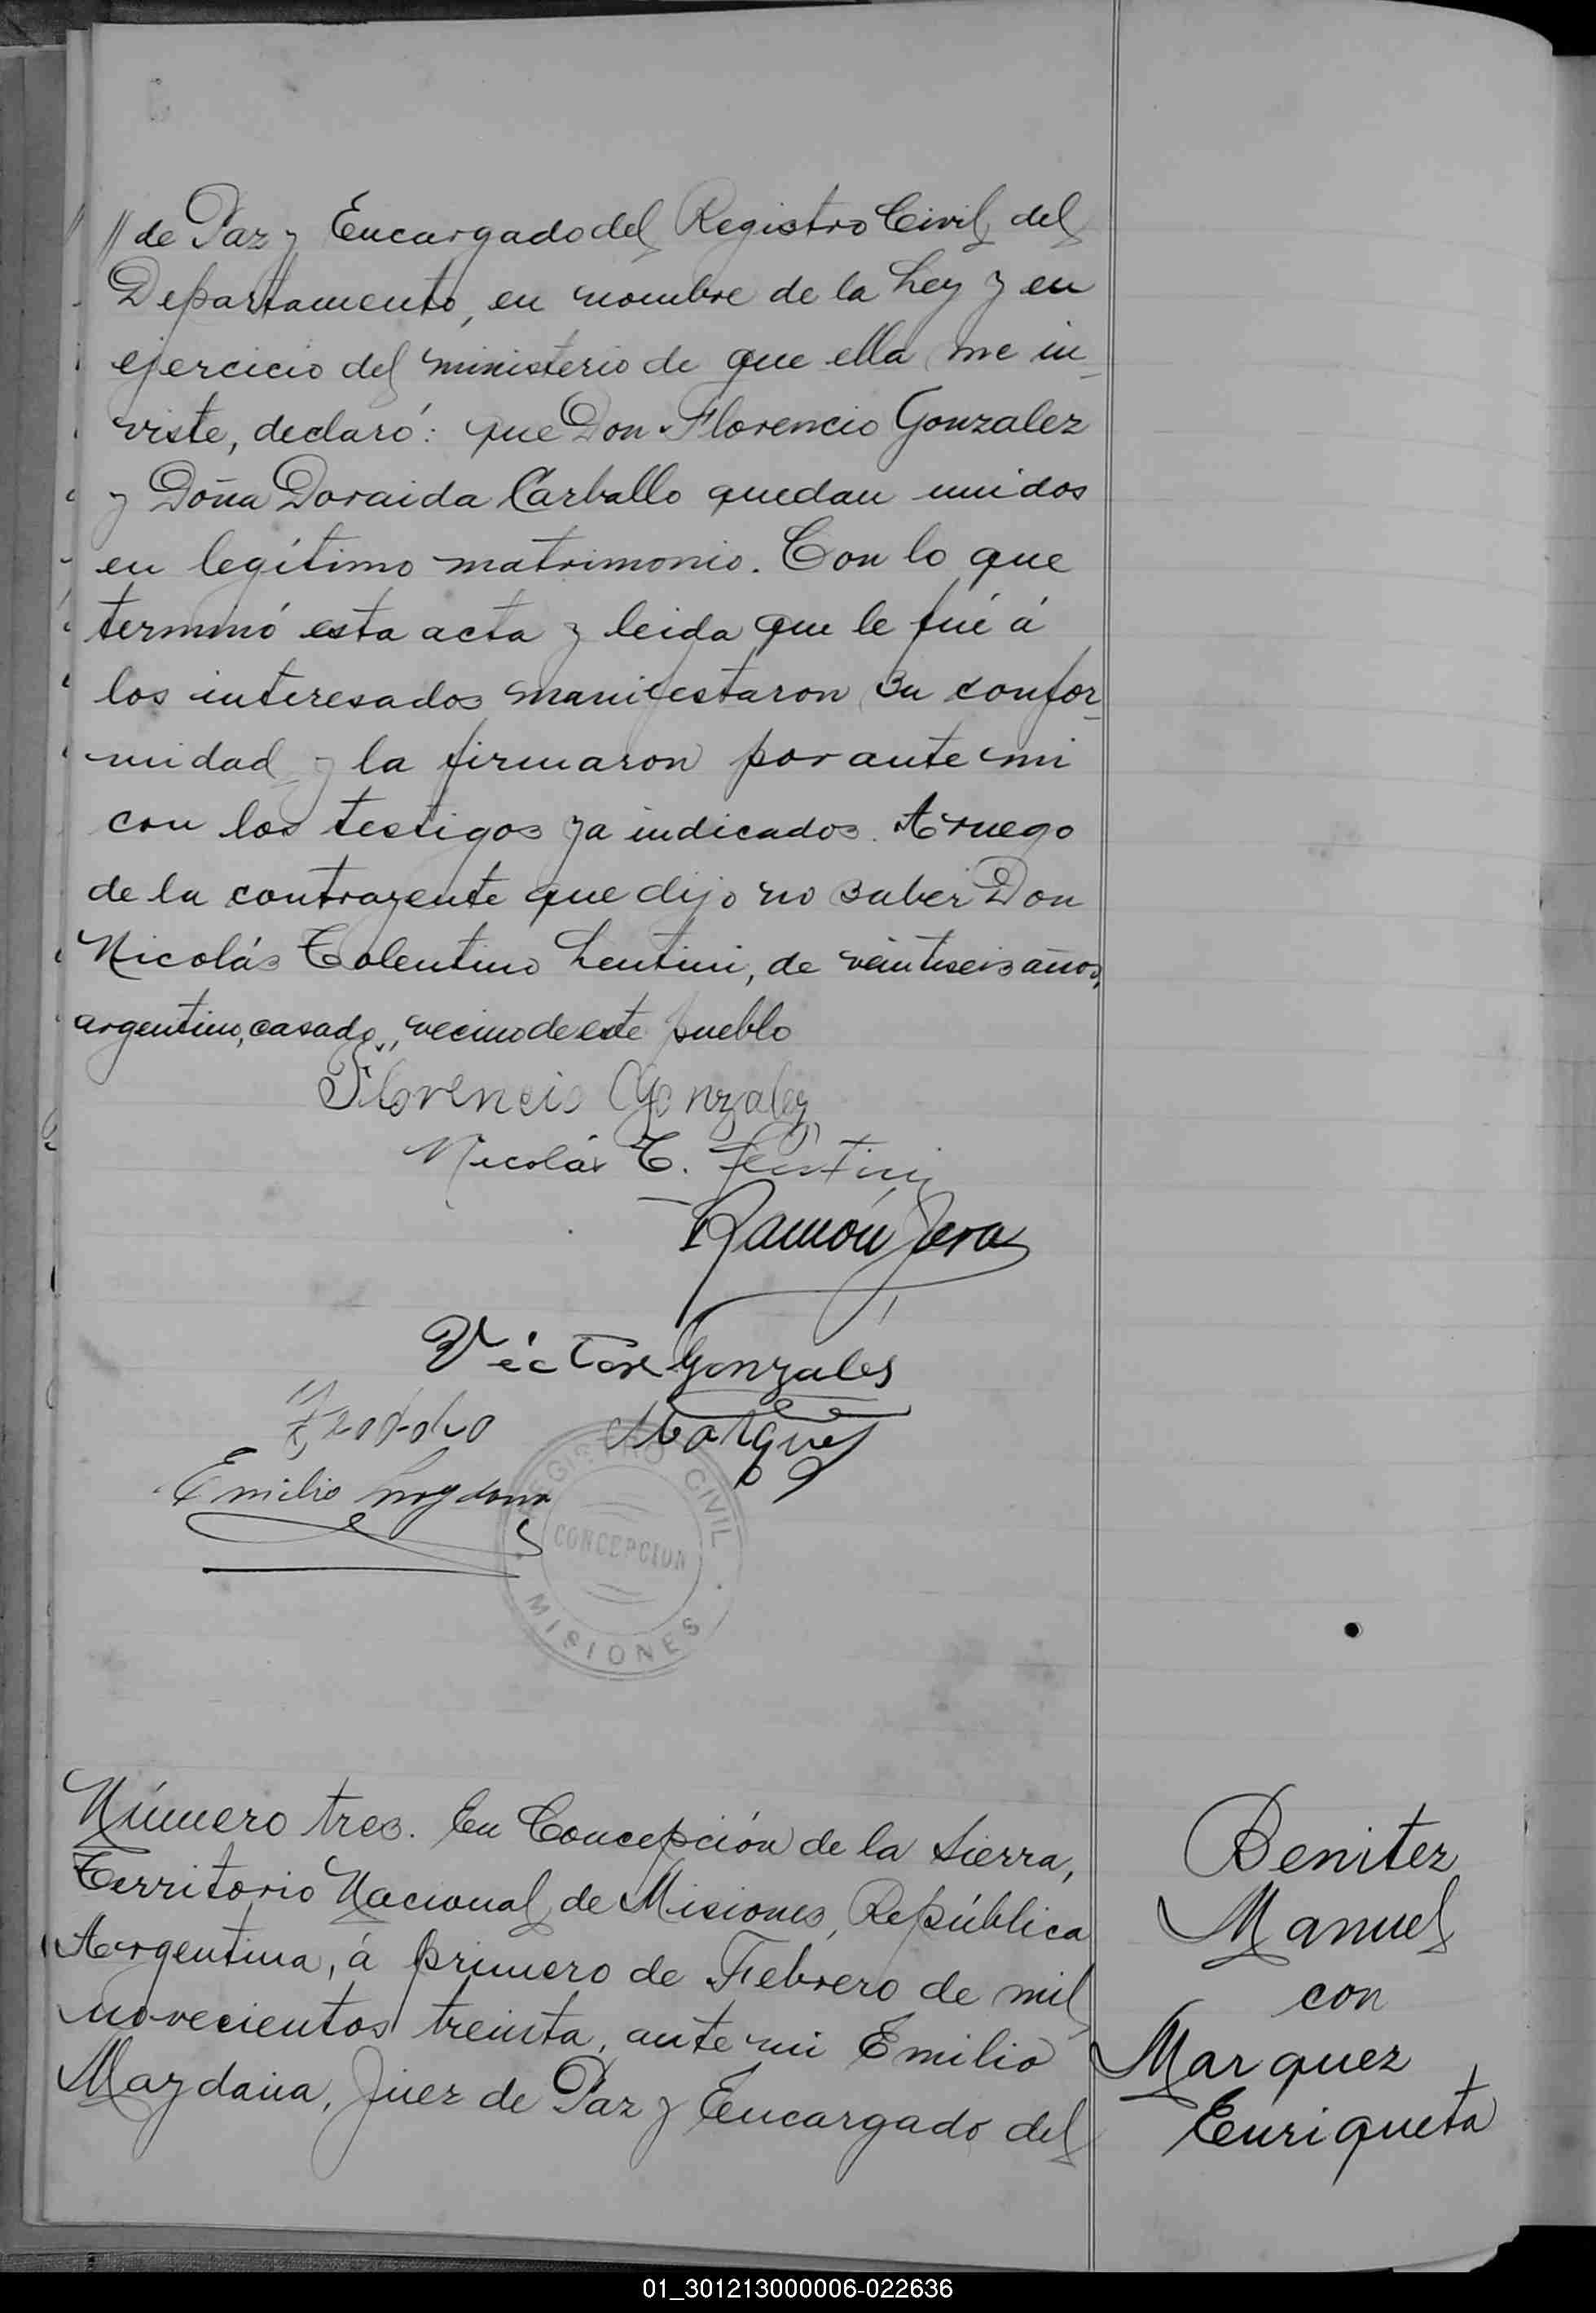 // de Paz y Encargado del Registro Civil del
Departamento, en nombre de la Ley y en
ejercicio del ministerio de que ella me in-
viste, declaró: que Don Florencio Gonzalez
y Doña Doraida Carballo quedan unidos
en legítimo matrimonio. Con lo que
terminó esta acta y leida que le fué á
los interesados manifestaron su confor-
midad y la firmaron por ante mi
con los testigos ya indicados. A ruego
de la contrayente que dijo no saber Don
Nicolás Tolentino Lentini, de veintiseis años,
argentino, casado, vecino de este pueblo
Florencio Gonzalez
Nicolás T. Lentini
Ramón Jara
Víctor Gonzales
Marquez
Emilio
REGISTRO CIVIL
CONCEPCION
MISIONES
Número tres. En Concepción de la Sierra,
Territorio Nacional de Misiones, República
Argentina, á primero de Febrero de mil
novecientos treinta, ante mi Emilio
Mazdana, Juez de Paz y Encargado del
Benitez
Manuel
con
Marquez
Enriqueta
01_301213000006-022636